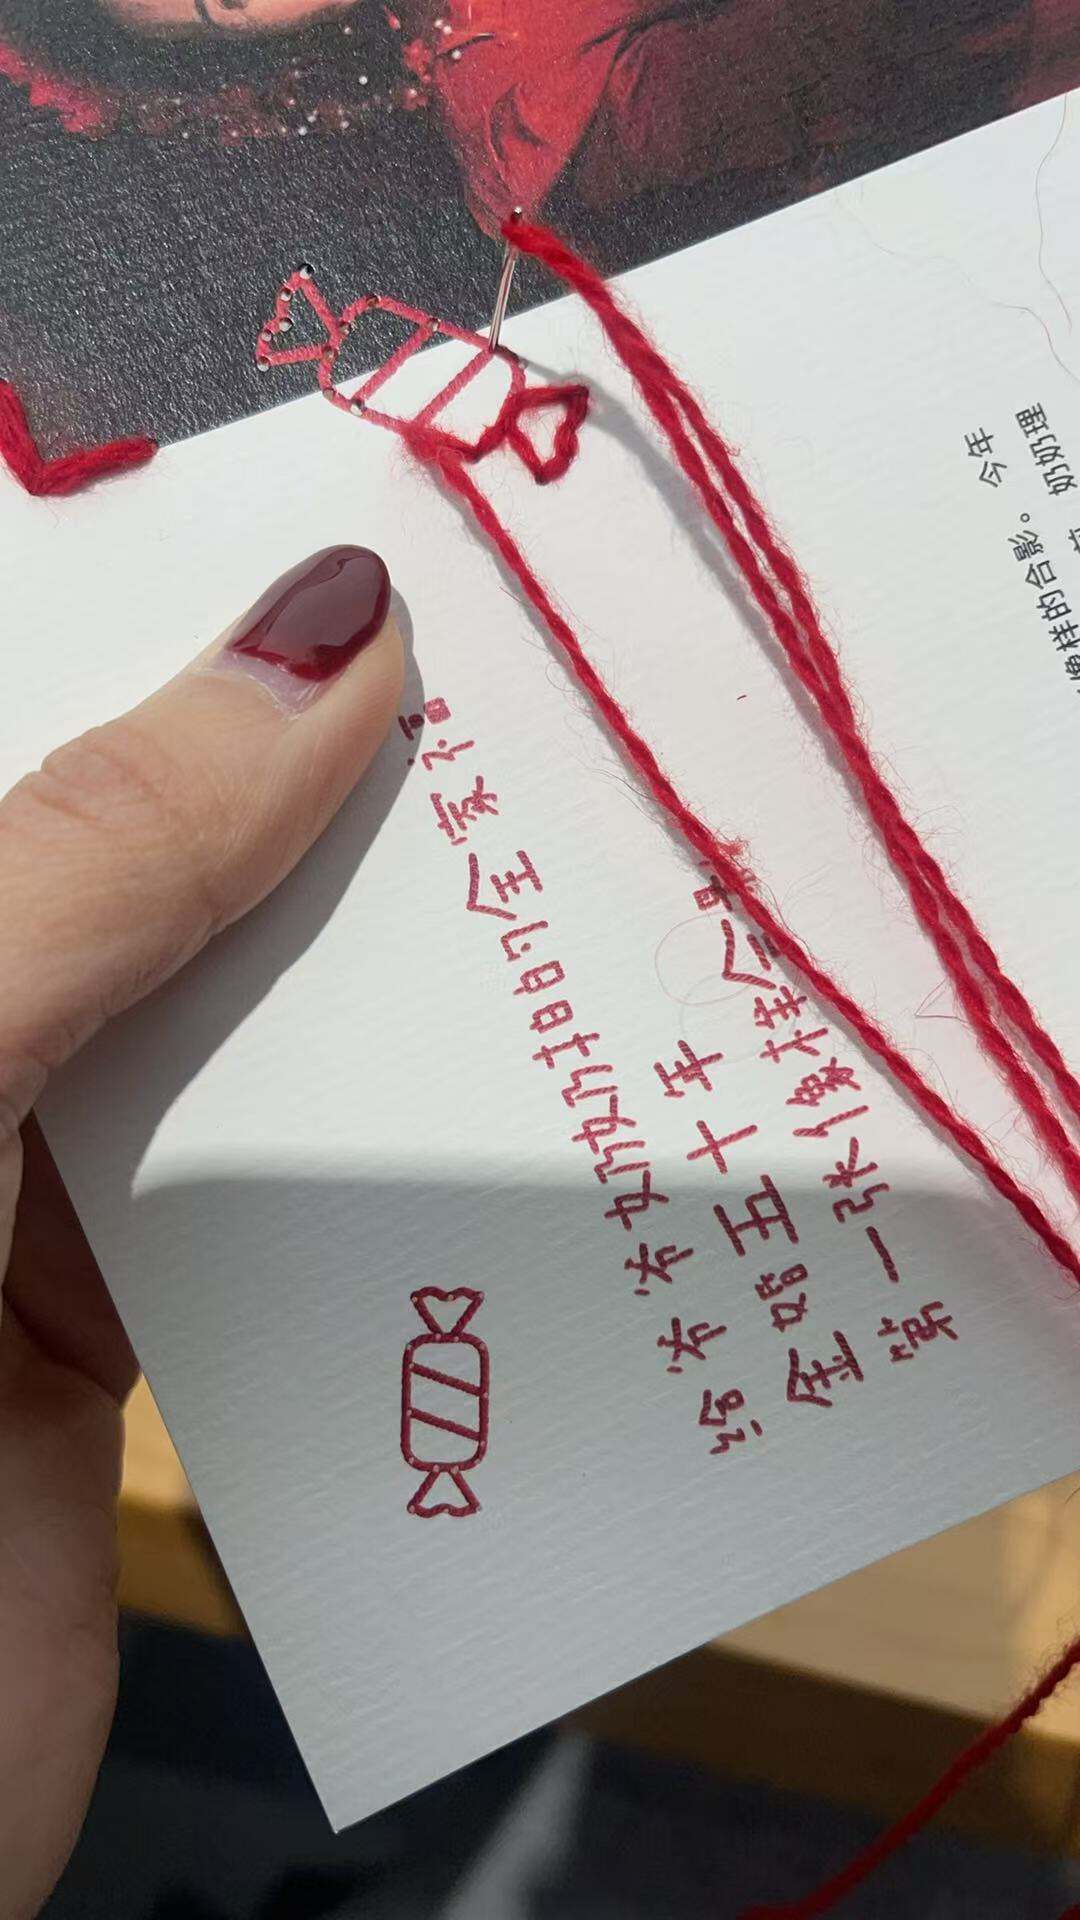 给爷爷奶奶拍的全家福
金婚五十年
第一张像样合影
今年
像样的合影。
奶奶理